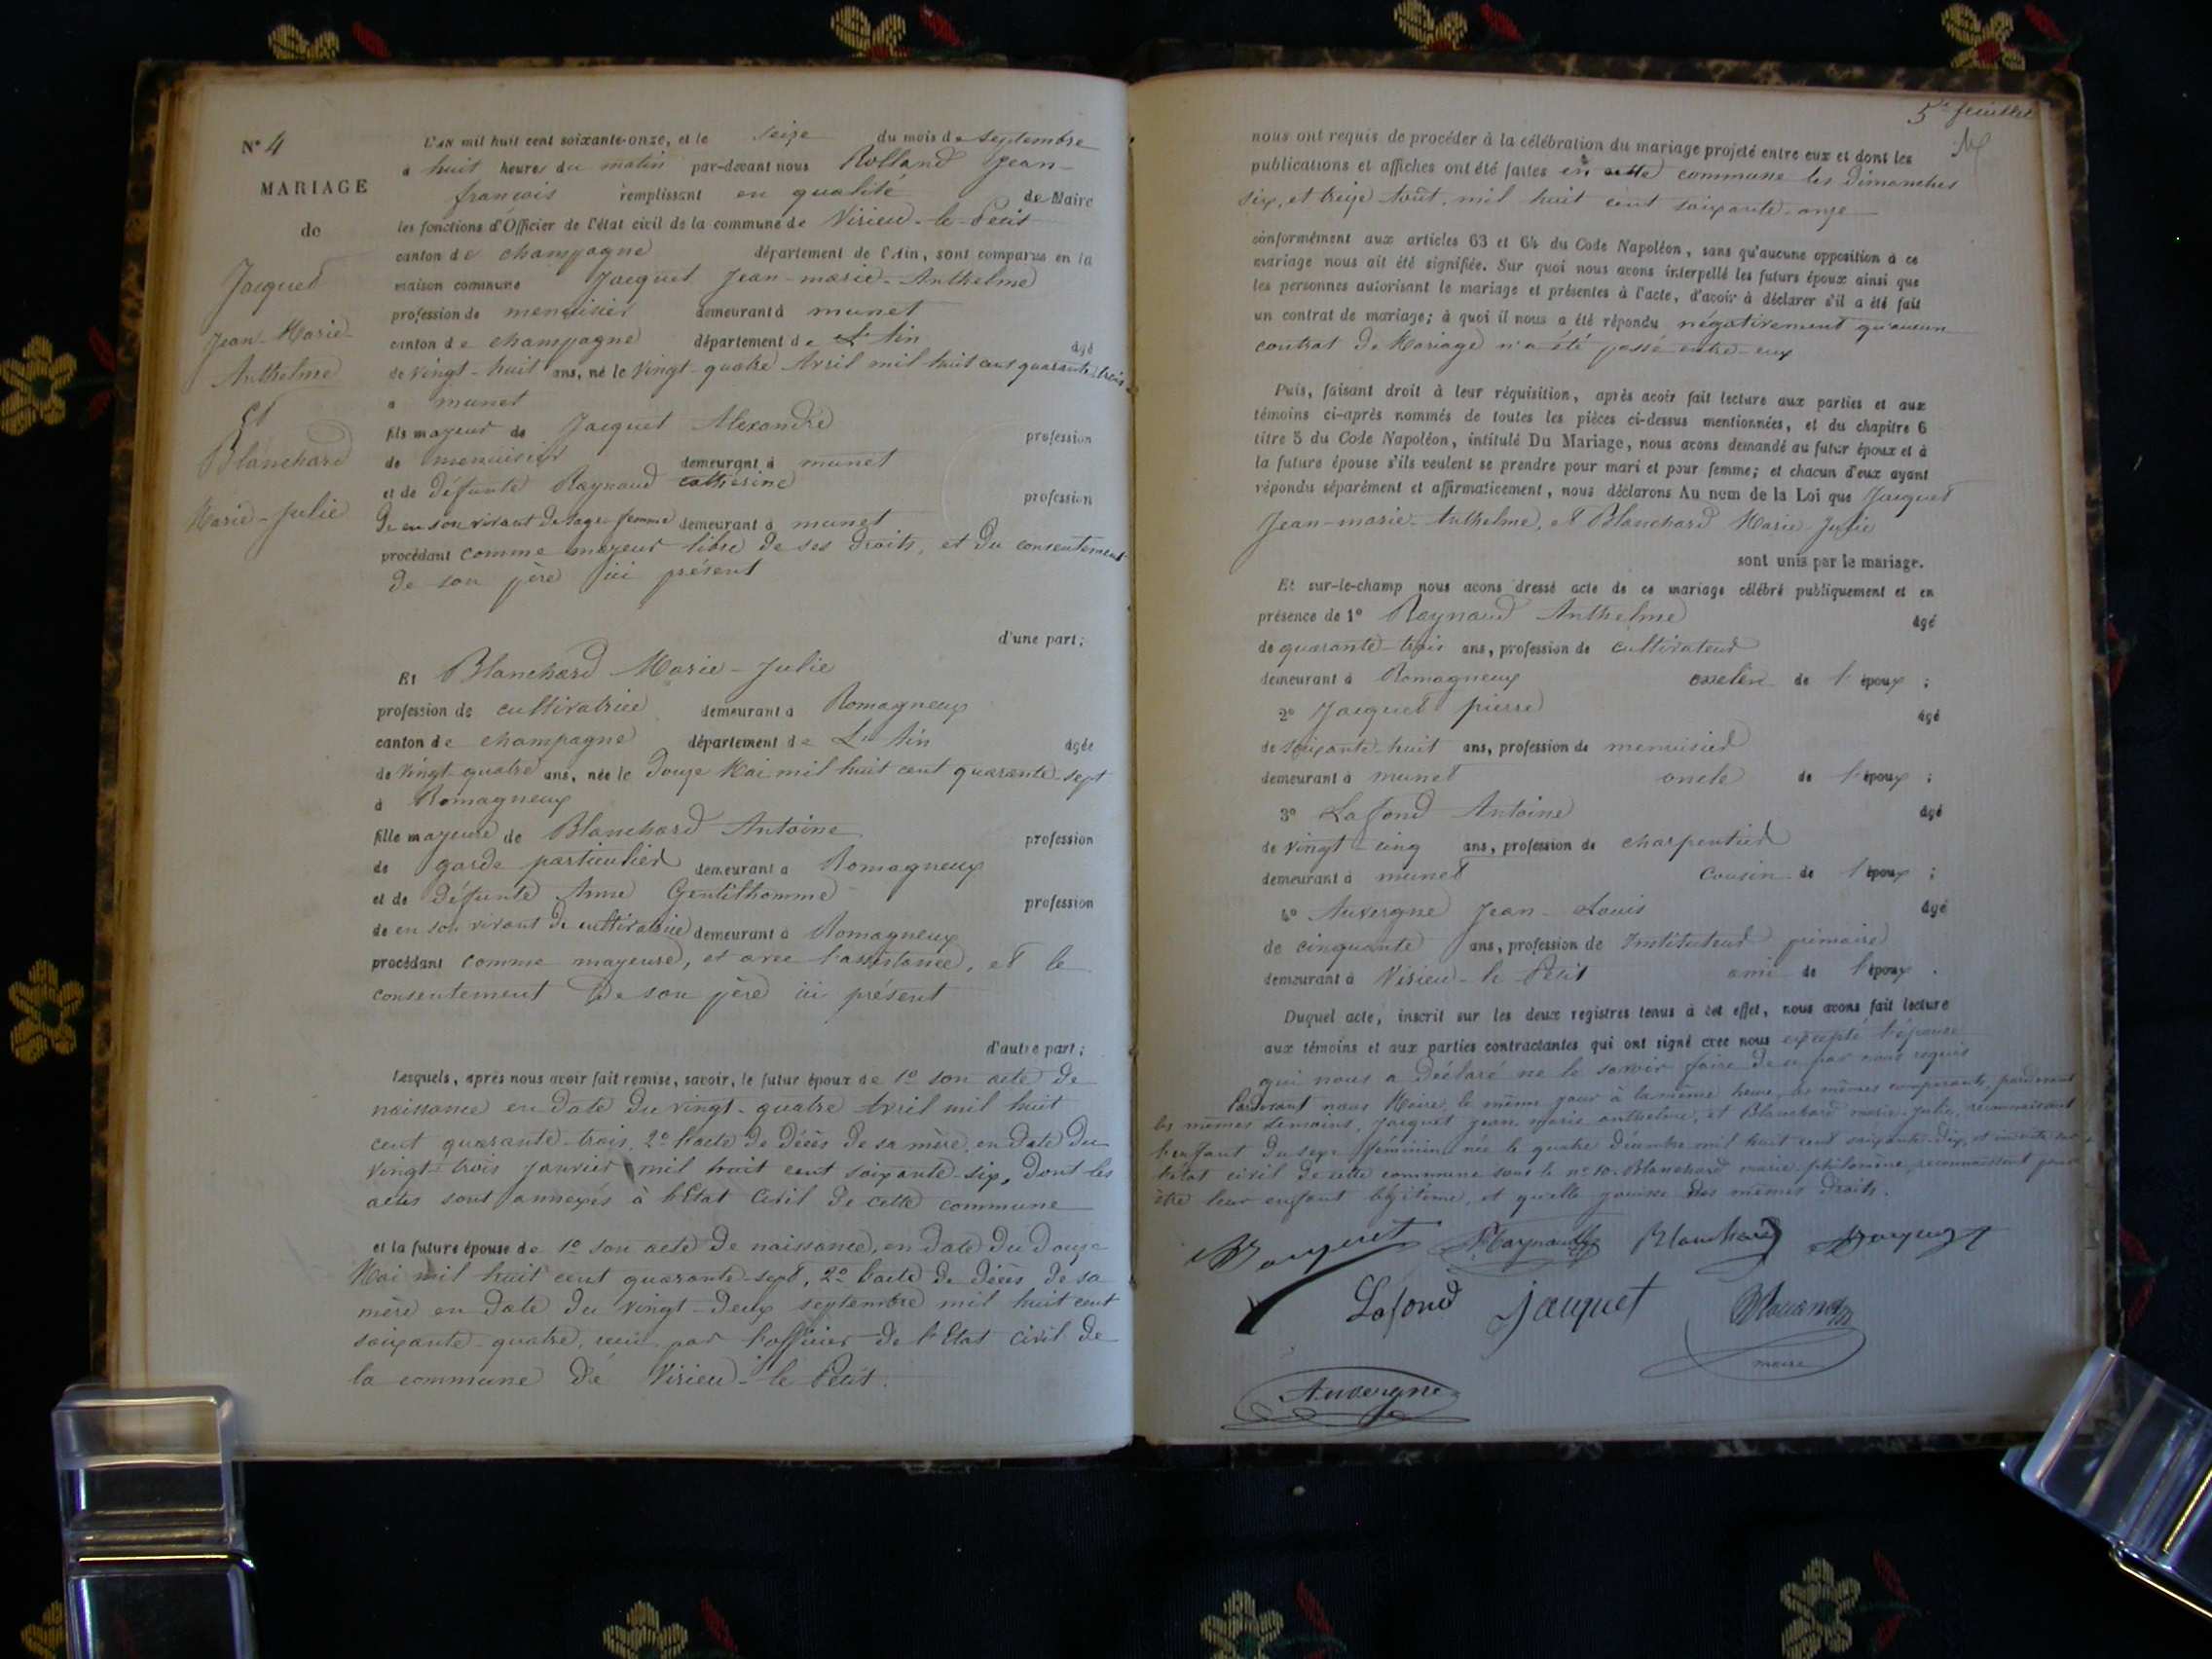 N° 4
MARIAGE
de
Jacquet
Jean-Marie-
Anthelme
Et
Blanchard
Marie-Julie
L'AN mil huit cent soixante-onze, et le seize du mois de septembre
à huit heures du matin par-devant nous Rolland Jean-
françois remplissant en qualité de Maire
les fonctions d'Officier de l'état civil de la commune de Virieu-le-Petit
canton de champagne département de l'Ain, sont comparus en la
maison commune Jacquet Jean-marie-Anthelme
profession de menuisier demeurant à munet
canton de champagne département de L'Ain âgé
de vingt-huit ans, né le vingt-quatre Avril mil huit cent quarante trois
à munet
fils mayeur de Jacquet Alexandre profession
de menuisier demeurant à munet
et de défunte Raynaud Cathérine profession
de en son vivant de sage-femme demeurant à munet
procédant comme mayeur libre de ses droits, et du consentement
de son père ici présent
d'une part;
Et Blanchard Marie-Julie
profession de cultivatrice demeurant à Romagneux
canton de champagne département de L'Ain âgée
de vingt-quatre ans, née le douze Mai mil huit cent quarante-sept
à Romagneux
fille mayeure de Blanchard Antoine profession
de garde particulier demeurant à Romagneux
et de défunte Anne Gentilhomme profession
de en son vivant de cultivatrice demeurant à Romagneux
procédant comme mayeure, et avec l'assistance, et le
consentement de son père ici présent
d'autre part;
Lesquels, après nous avoir fait remise, savoir, le futur époux de 1° son acte de
naissance en date du vingt-quatre Avril mil huit
cent quarante-trois, 2° l'acte de décès de sa mère, en date du
vingt-trois janvier mil huit cent soixante-six, dont les
actes sont annexés à l'Etat Civil de cette commune
et la future épouse de 1° son acte de naissance, en date du douze
Mai mil huit cent quarante-sept, 2° l'acte de décès de sa
mère en date du vingt-deux septembre mil huit cent
soixante-quatre, par l'officier de l'Etat Civil de
la commune de Virieu-le-Petit.
5e feuillet
nous ont requis de procéder à la célébration du mariage projeté entre eux et dont les
publications et affiches ont été faites en cette commune les dimanches
six, et treize Aout, mil huit cent soixante-onze
conformément aux articles 63 et 64 du Code Napoléon, sans qu'aucune opposition à ce
mariage nous ait été signifiée. Sur quoi nous avons interpellé les futurs époux ainsi que
les personnes autorisant le mariage et présentes à l'acte, d'avoir à déclarer s'il a été fait
un contrat de mariage; à quoi il nous a été répondu négativement qu'aucun
contrat de Mariage n'a été passé entre-eux
Puis, faisant droit à leur réquisition, après avoir fait lecture aux parties et aux
témoins ci-après nommés de toutes les pièces ci-dessus mentionnées, et du chapitre 6
titre 5 du Code Napoléon, intitulé Du Mariage, nous avons demandé au futur époux et à
la future épouse s'ils veulent se prendre pour mari et pour femme; et chacun d'eux ayant
répondu séparément et affirmativement, nous déclarons Au nom de la Loi que Jacquet
Jean-marie-Anthelme, et Blanchard Marie-Julie
sont unis par le mariage.
Et sur-le-champ nous avons dressé acte de ce mariage célébré publiquement et en
présence de 1° Raynaud Anthelme âgé
de quarante-trois ans, profession de cultivateur
demeurant à Romagneux de l'époux ;
2° Jacquet pierre âgé
de soixante-huit ans, profession de menuisier
demeurant à munet oncle de l'époux ;
3° Lafond Antoine âgé
de vingt-cinq ans, profession de charpentier
demeurant à munet cousin de l'époux ;
4° Auvergne Jean-Louis âgé
de cinquante ans, profession de Instituteur primaire
demeurant à Virieu-le-Petit ami de l'époux.
Duquel acte, inscrit sur les deux registres tenus à cet effet, nous avons fait lecture
aux témoins et aux parties contractantes qui ont signé avec nous excepté l'épouse
qui nous a déclaré ne le savoir faire de ce par nous requis
Pardevant nous Maire, le même jour à la même heure, les mêmes comparants, pardevant
les mêmes témoins, Jacquet jean marie anthelme, et Blanchard marie-julie, reconnaissent
l'enfant du sexe féminin née le quatre décembre mil huit cent soixante-dix, et inscrite sur
l'etat civil de cette commune sous le n° 10. Blanchard marie-philomène, reconnaissent pour
être leur enfant légitime, et qu'elle jouisse des mêmes droits.
Jacquet Raynaud Blanchard Jacquet
Lafond jacquet Rolland
maire
Auvergne